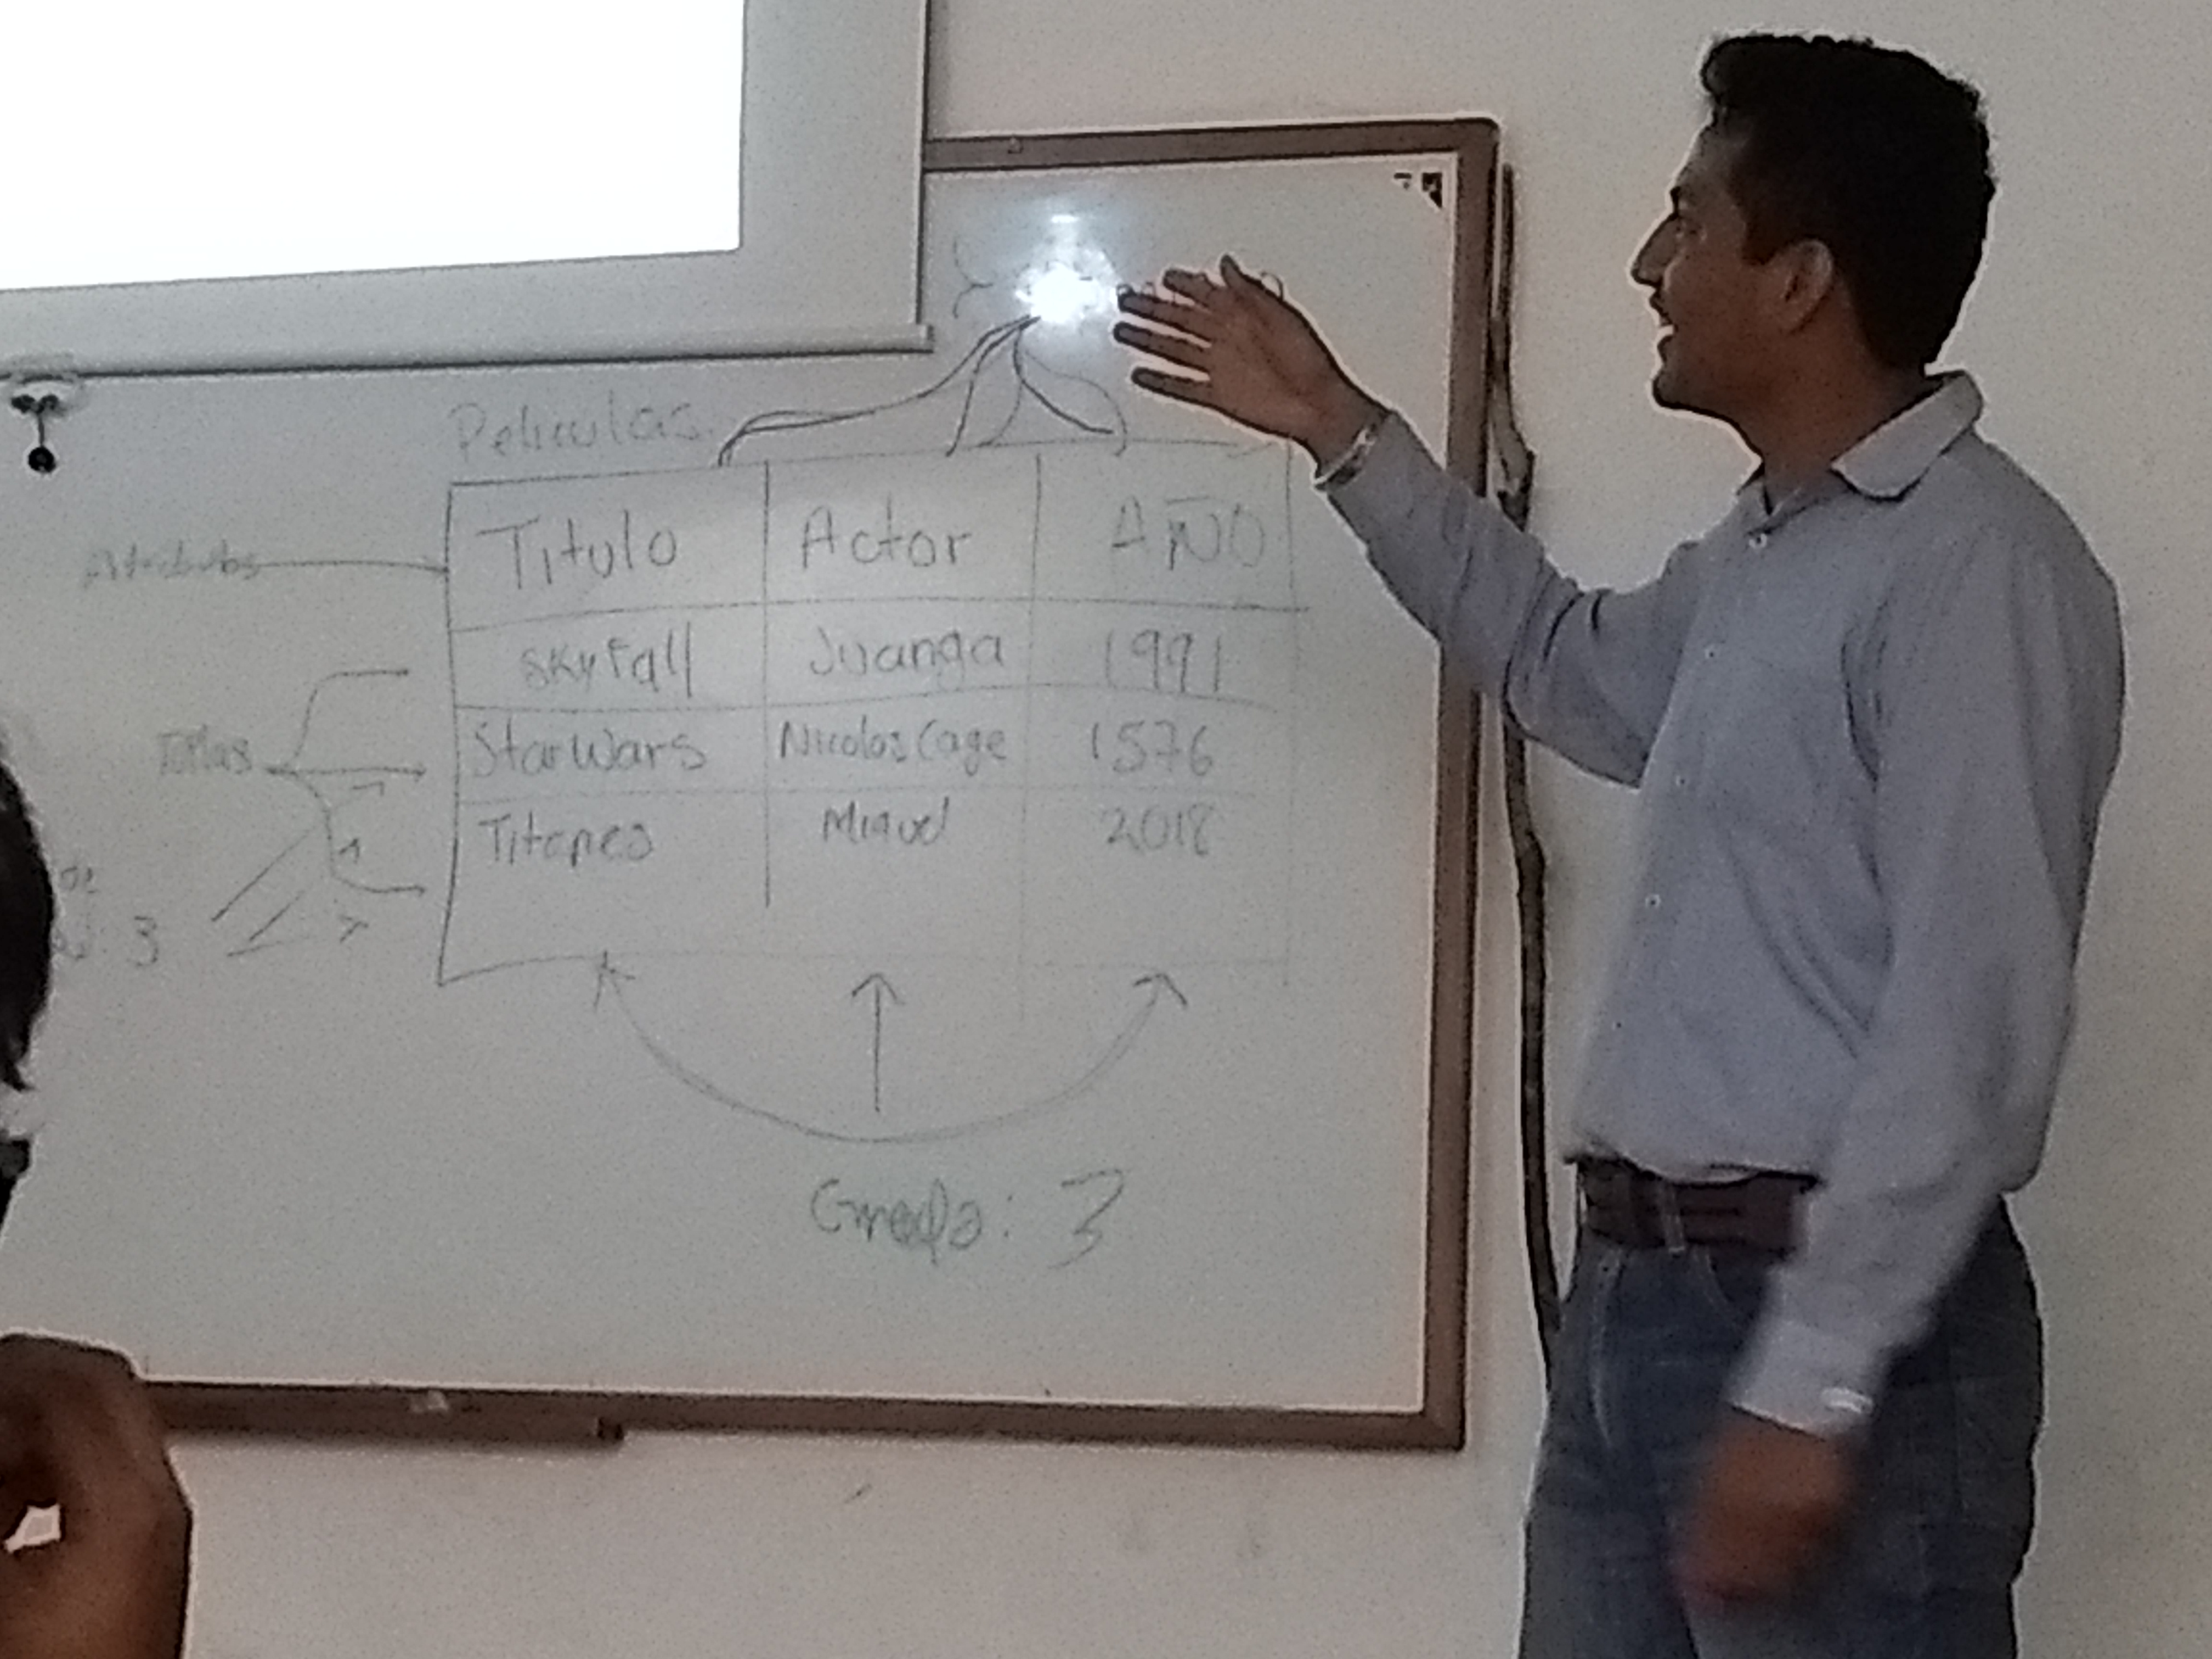 Peliculas
Titulo Actor AÑO
Skyfall Juanga 1991
StarWars Nicolas Cage 1576
Titanes Miguel 2018
3
Grado: 3